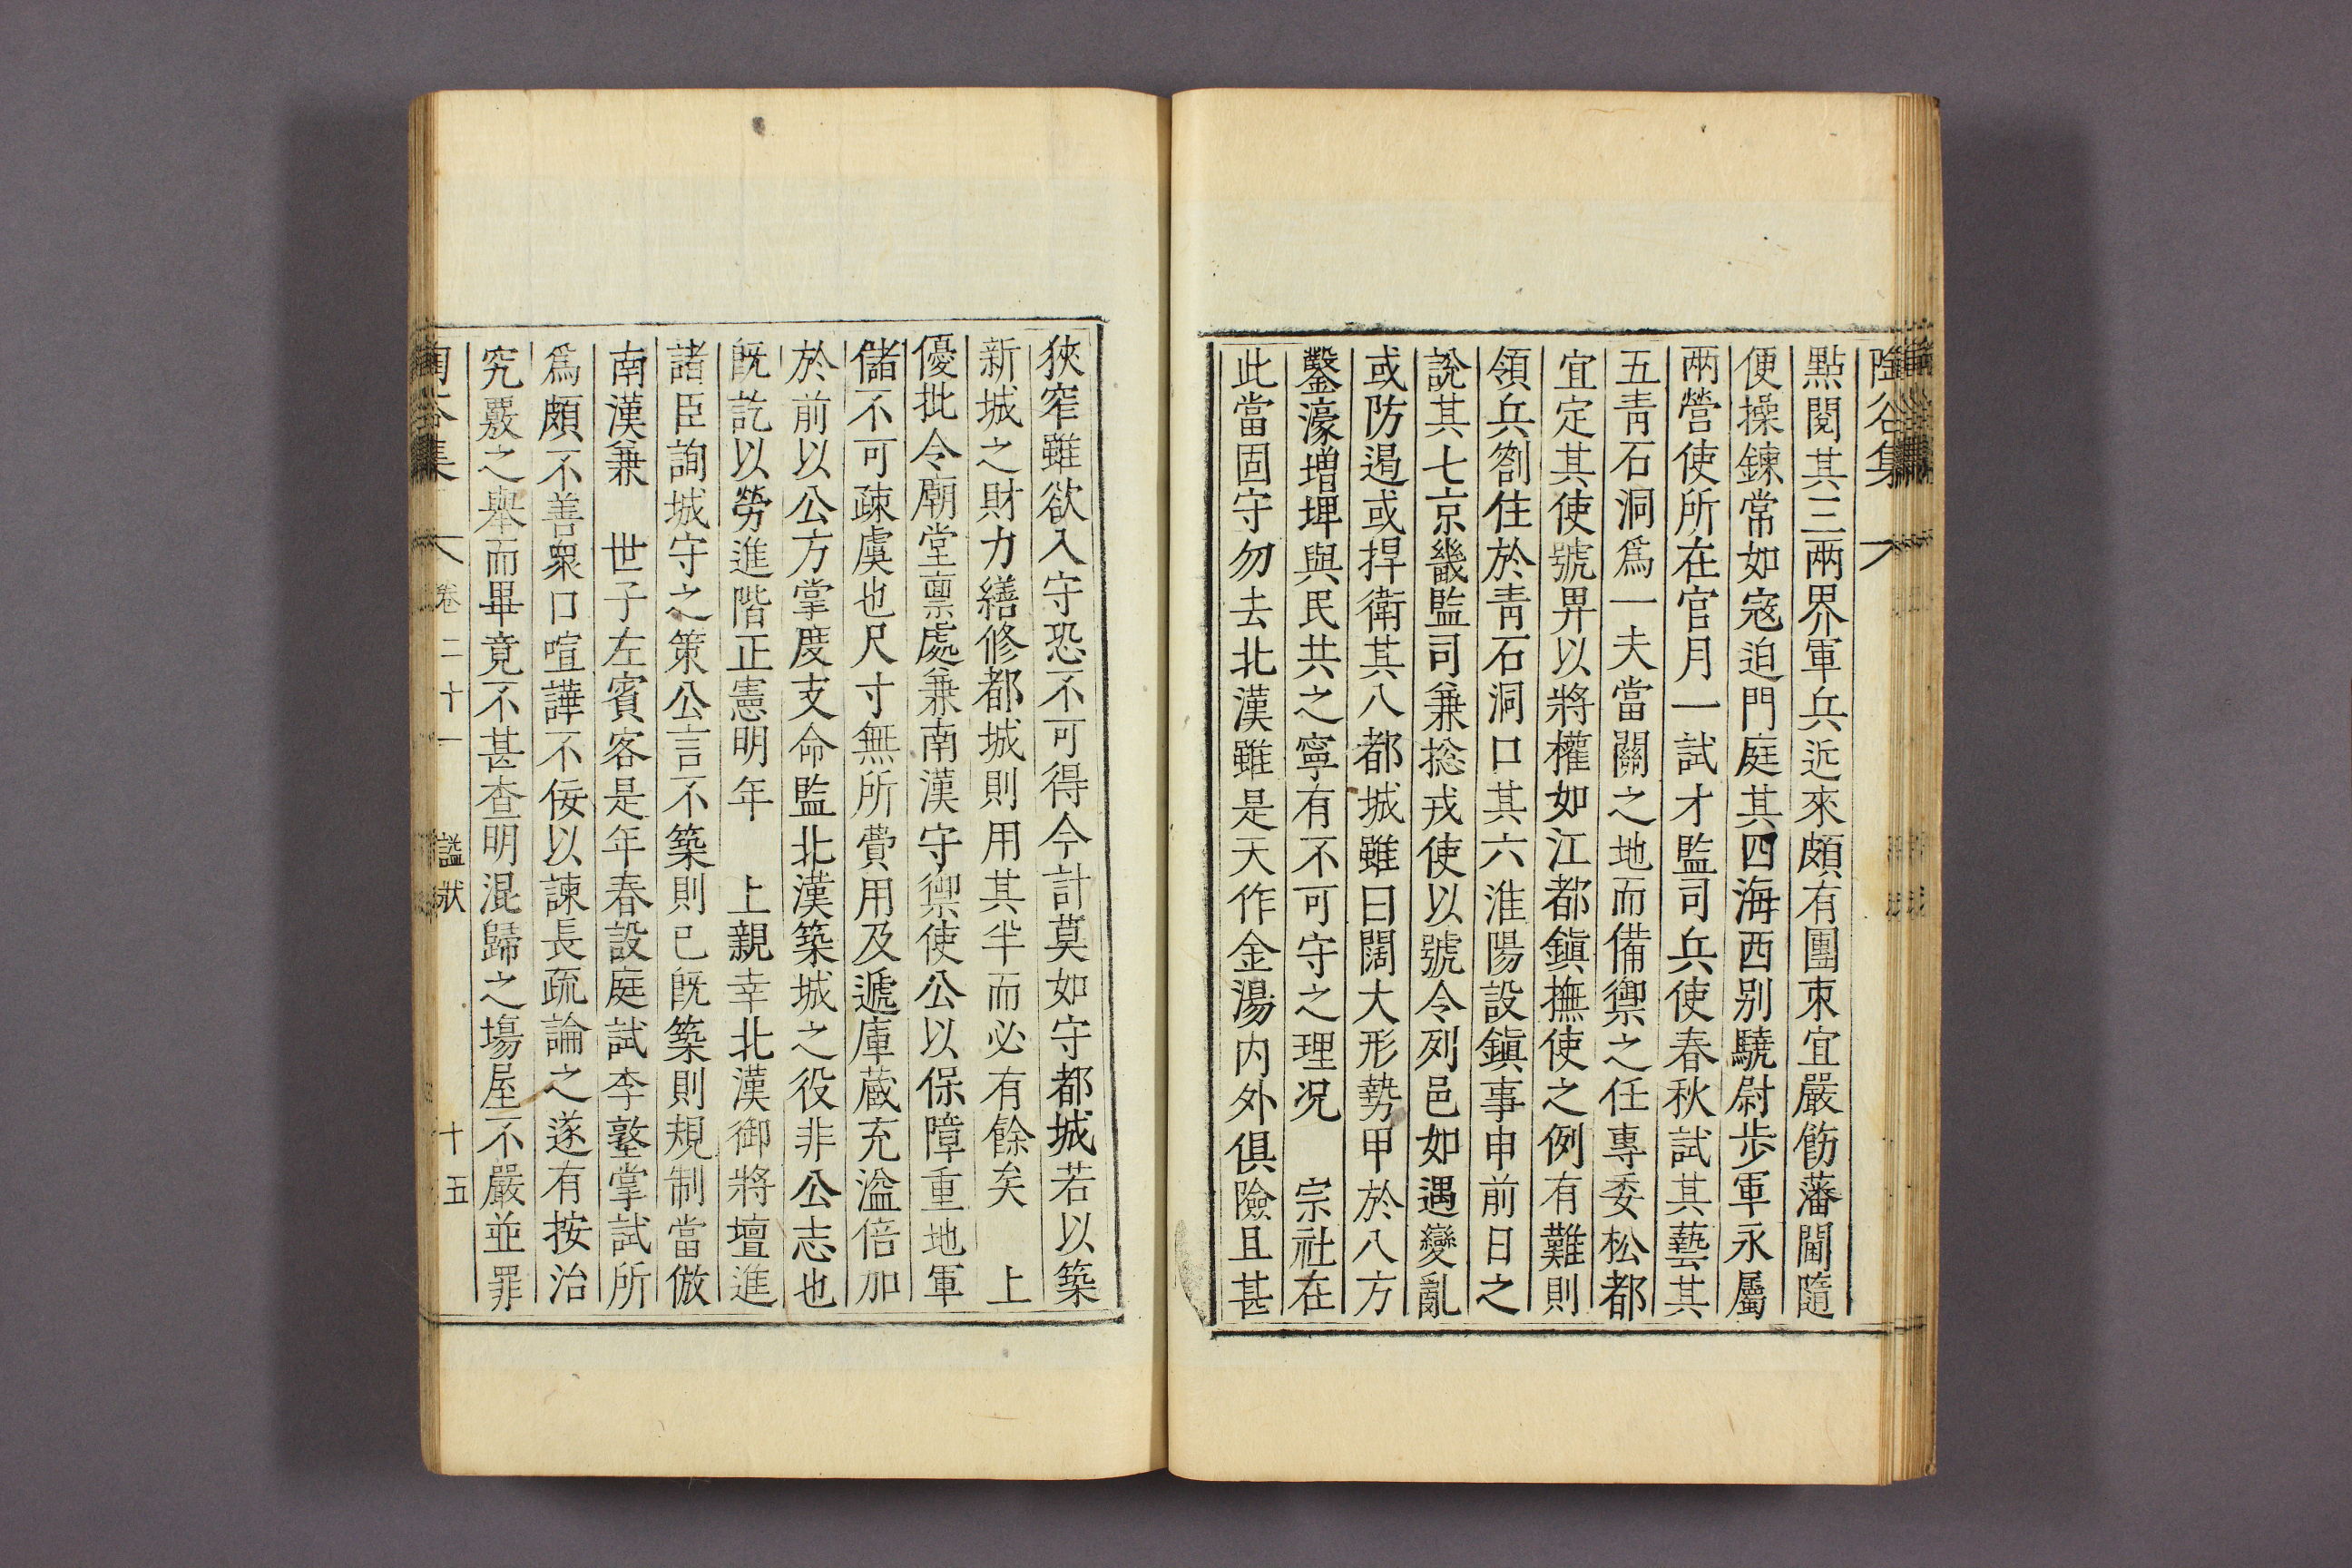 陶谷集
點閱其三兩界軍兵近來頗有團束宜嚴飭藩閫隨
便操鍊常如寇迫門庭其四海西别驍尉步軍永屬
兩營使所在官月一試才監司兵使春秋試其藝其
五靑石洞爲一夫當關之地而備禦之任專委松都
宜定其使號畀以將權如江都鎭撫使之例有難則
領兵劄住於靑石洞口其六淮陽設鎭事申前日之
說其七京畿監司兼捴戎使以號令列邑如遇變亂
或防遏或捍衛其八都城雖曰闊大形勢甲於八方
鑿濠增埤與民共之寧有不可守之理况　宗社在
此當固守勿去北漢雖是天作金湯内外俱險且甚
狹窄雖欲入守恐不可得今計莫如守都城若以築
新城之財力繕修都城則用其半而必有餘矣　上
優批令廟堂禀處兼南漢守禦使公以保障重地軍
儲不可疎虞也尺寸無所費用及遞庫蔵充溢倍加
於前以公方掌度支命監北漢築城之役非公志也
旣訖以勞進階正憲明年　上親幸北漢御將壇進
諸臣詢城守之策公言不築則已旣築則規制當倣
南漢兼　世子左賓客是年春設庭試李墪掌試所
爲頗不善衆口喧譁不佞以諫長疏論之遂有按治
究覈之擧而畢竟不甚查明混歸之塲屋不嚴並罪
陶谷集　卷二十一　諡狀　十五